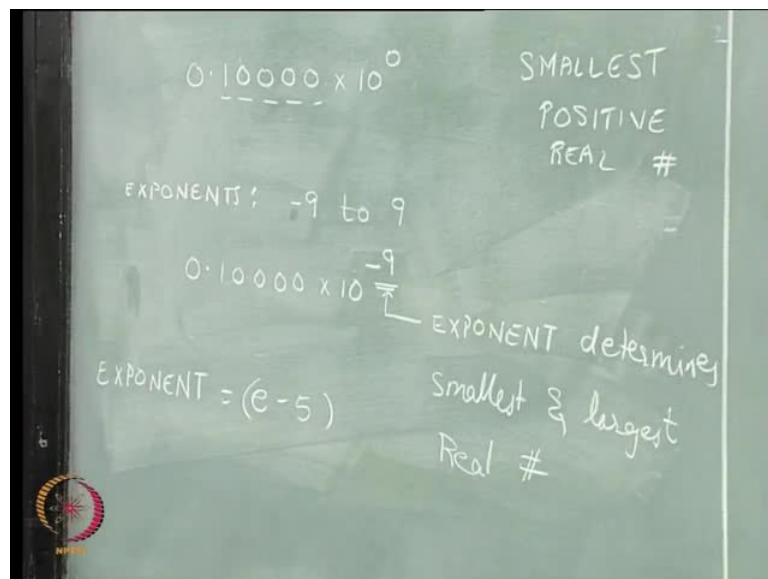 0.10000 × 10⁰
SMALLEST
POSITIVE
REAL #
EXPONENTS: -9 to 9
0.10000 × 10⁻⁹
EXPONENT determines
Smallest & largest
Real #
EXPONENT = (e - 5)
NPTEL